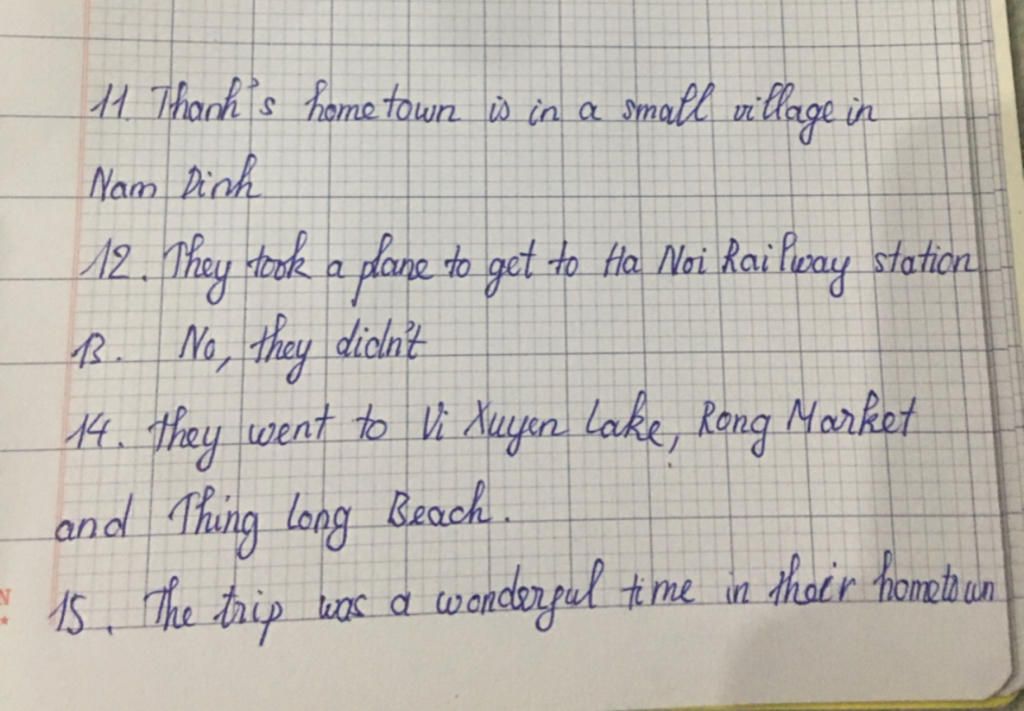 11. Thanh's hometown is in a small village in
Nam Dinh
12. They took a plane to get to Ha Noi Railway station
13. No, they didn't
14. they went to Vi Xuyen Lake, Rong Market
and Thing Long Beach.
15. The trip was a wonderful time in their hometown
N